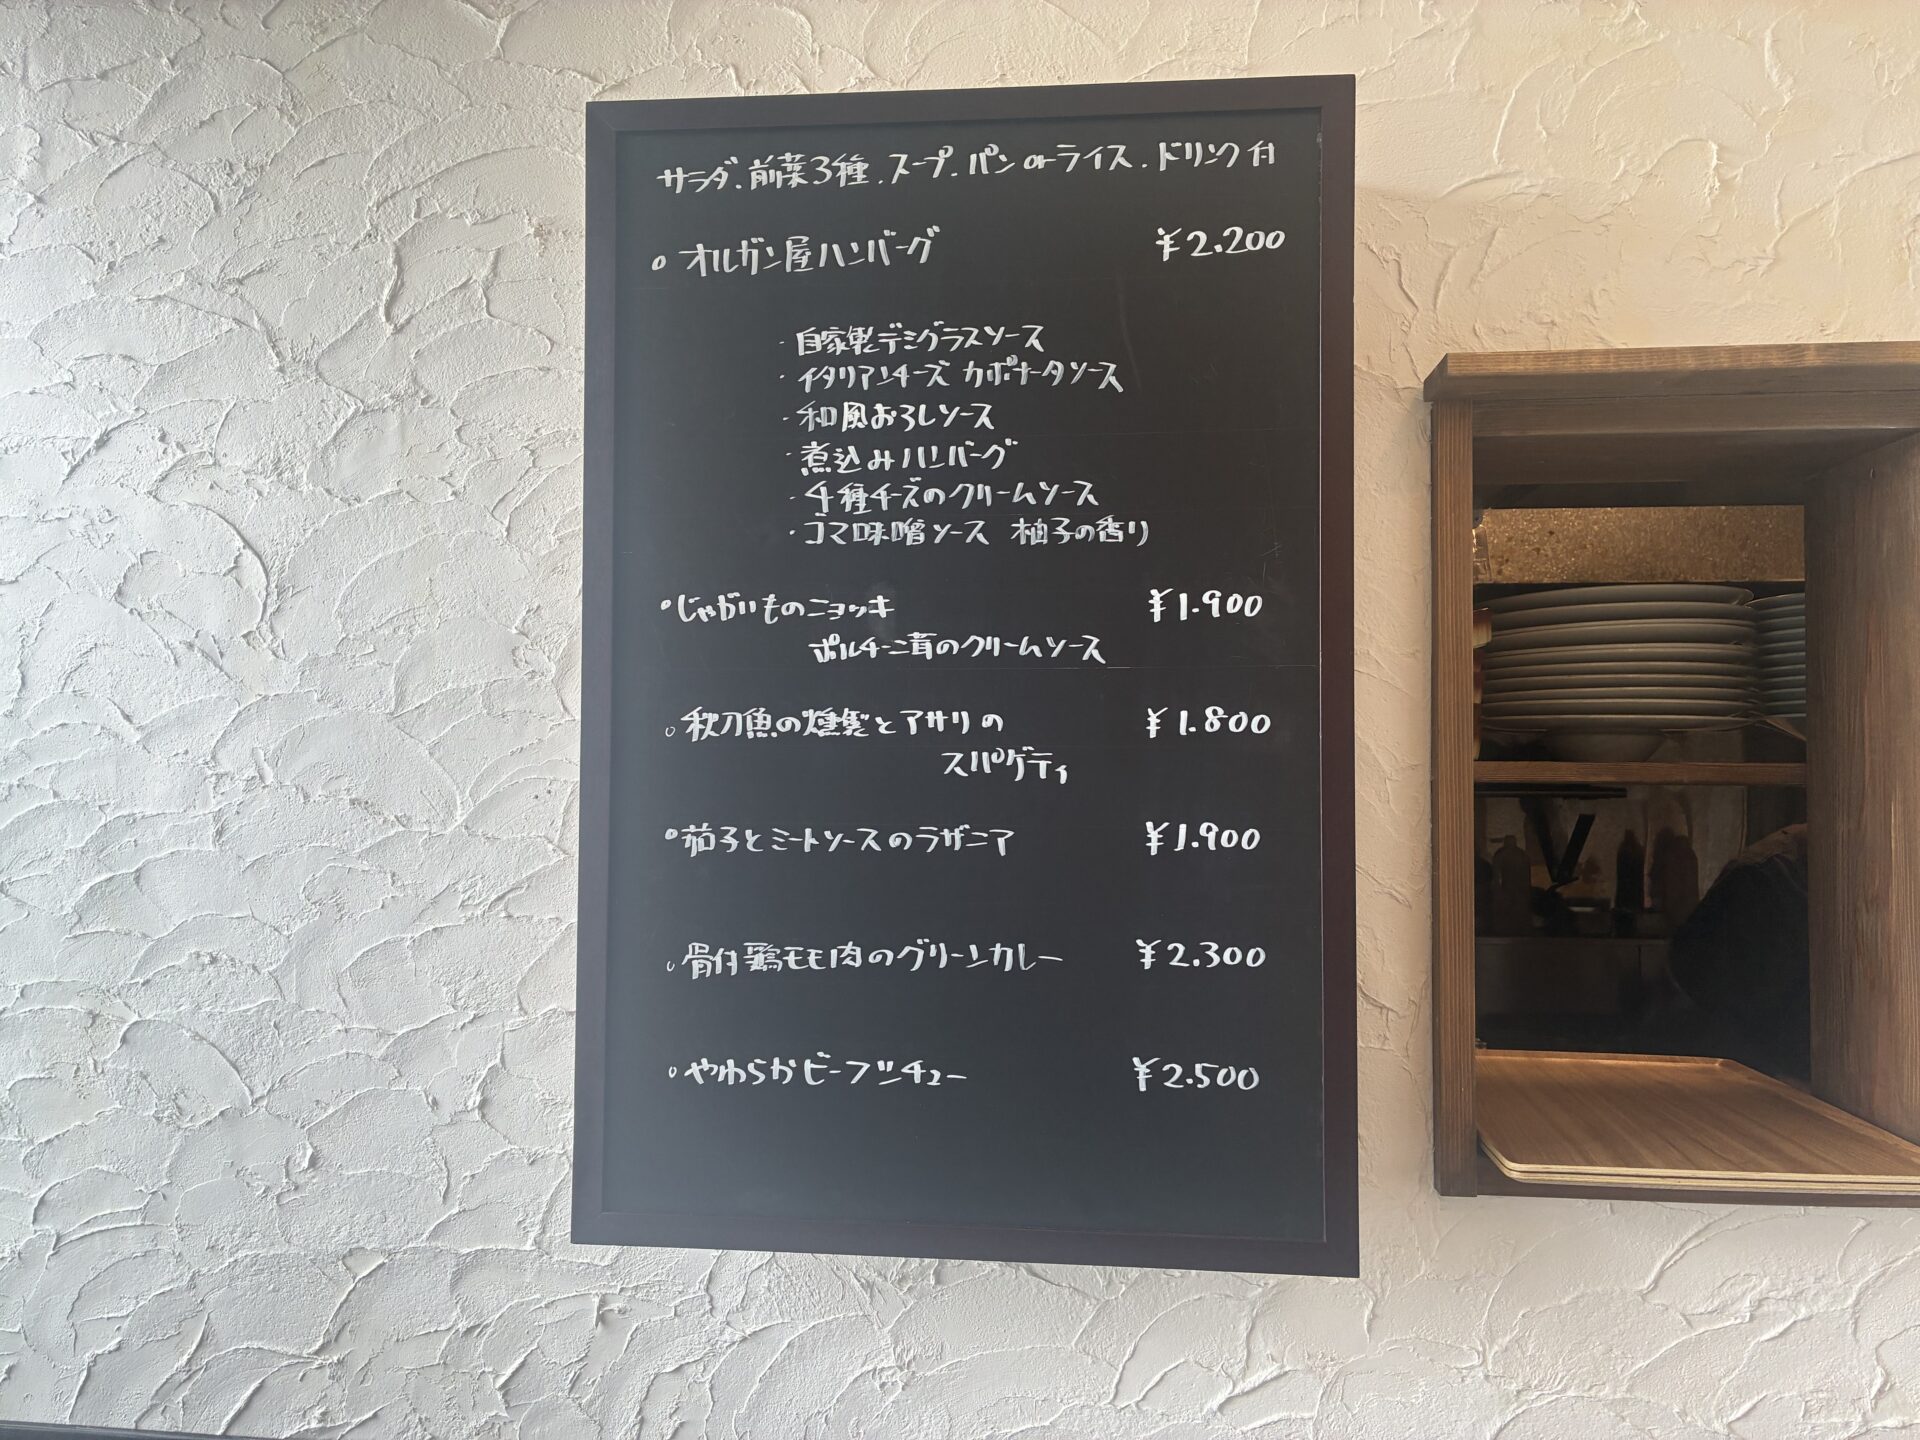 サラダ、前菜3種、スープ、パンorライス、ドリンク付
○ オルガン屋ハンバーグ ¥2.200
・自家製デミグラスソース
・イタリアンチーズ カポナータソース
・和風おろしソース
・煮込みハンバーグ
・4種チーズのクリームソース
・ゴマ味噌ソース 柚子の香り
○じゃがいものニョッキ ¥1.900
ポルチーニ茸のクリームソース
○ 秋刀魚の燻製とアサリの ¥1.800
スパゲティ
○茄子とミートソースのラザニア ¥1.900
○骨付鶏モモ肉のグリーンカレー ¥2.300
○やわらかビーフシチュー ¥2.500